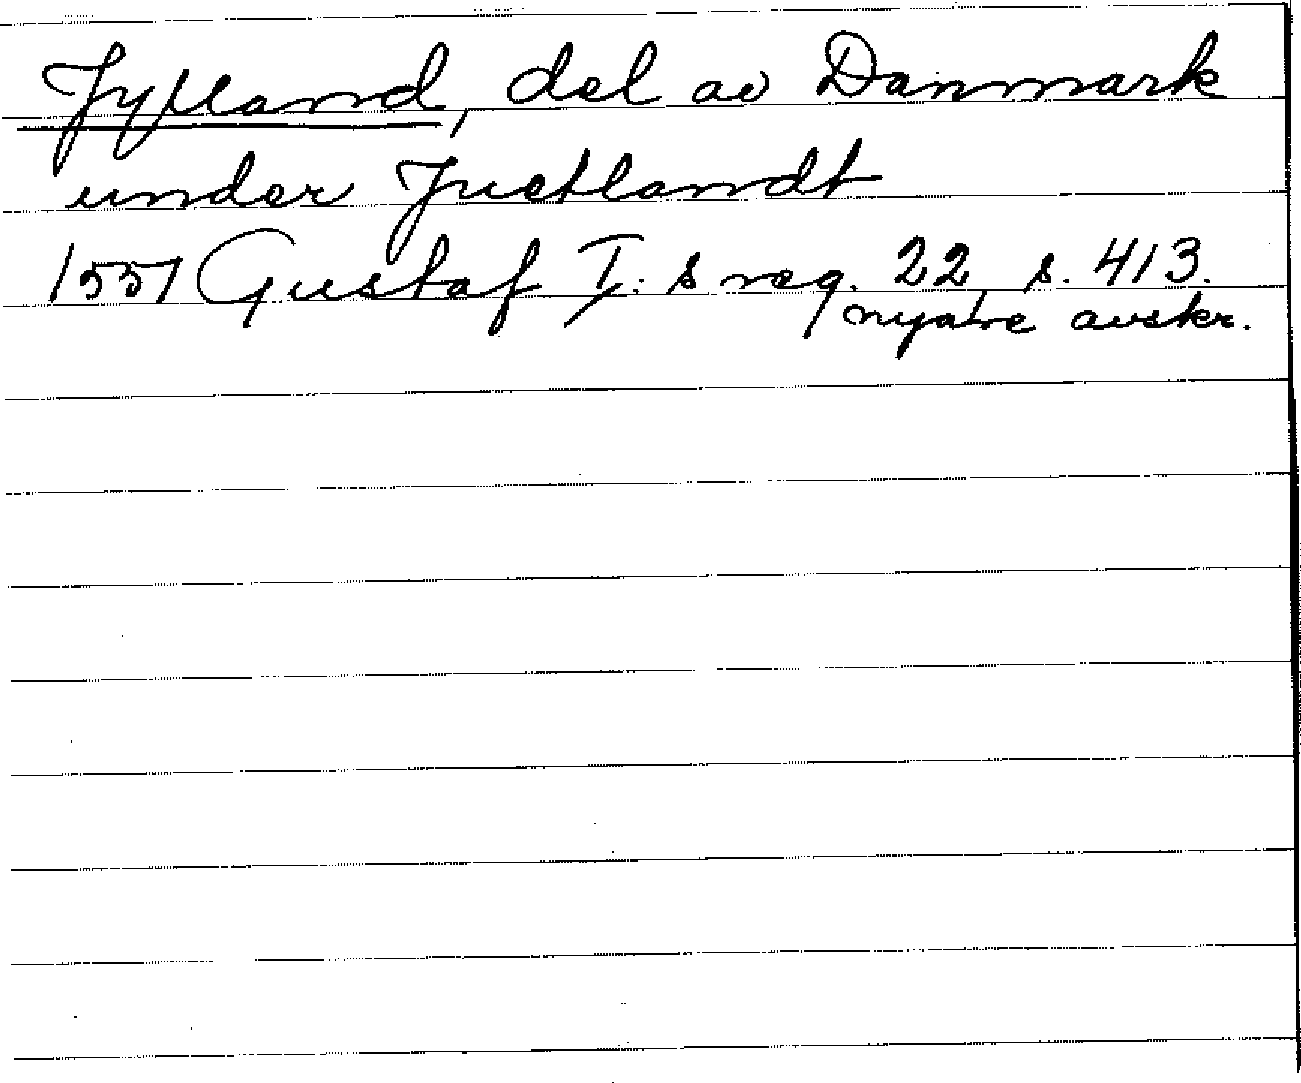 Jylland, del av Danmark
under Juctlandt
1551 Gustaf I:s reg. 22, s. 413.
nyare avskr.